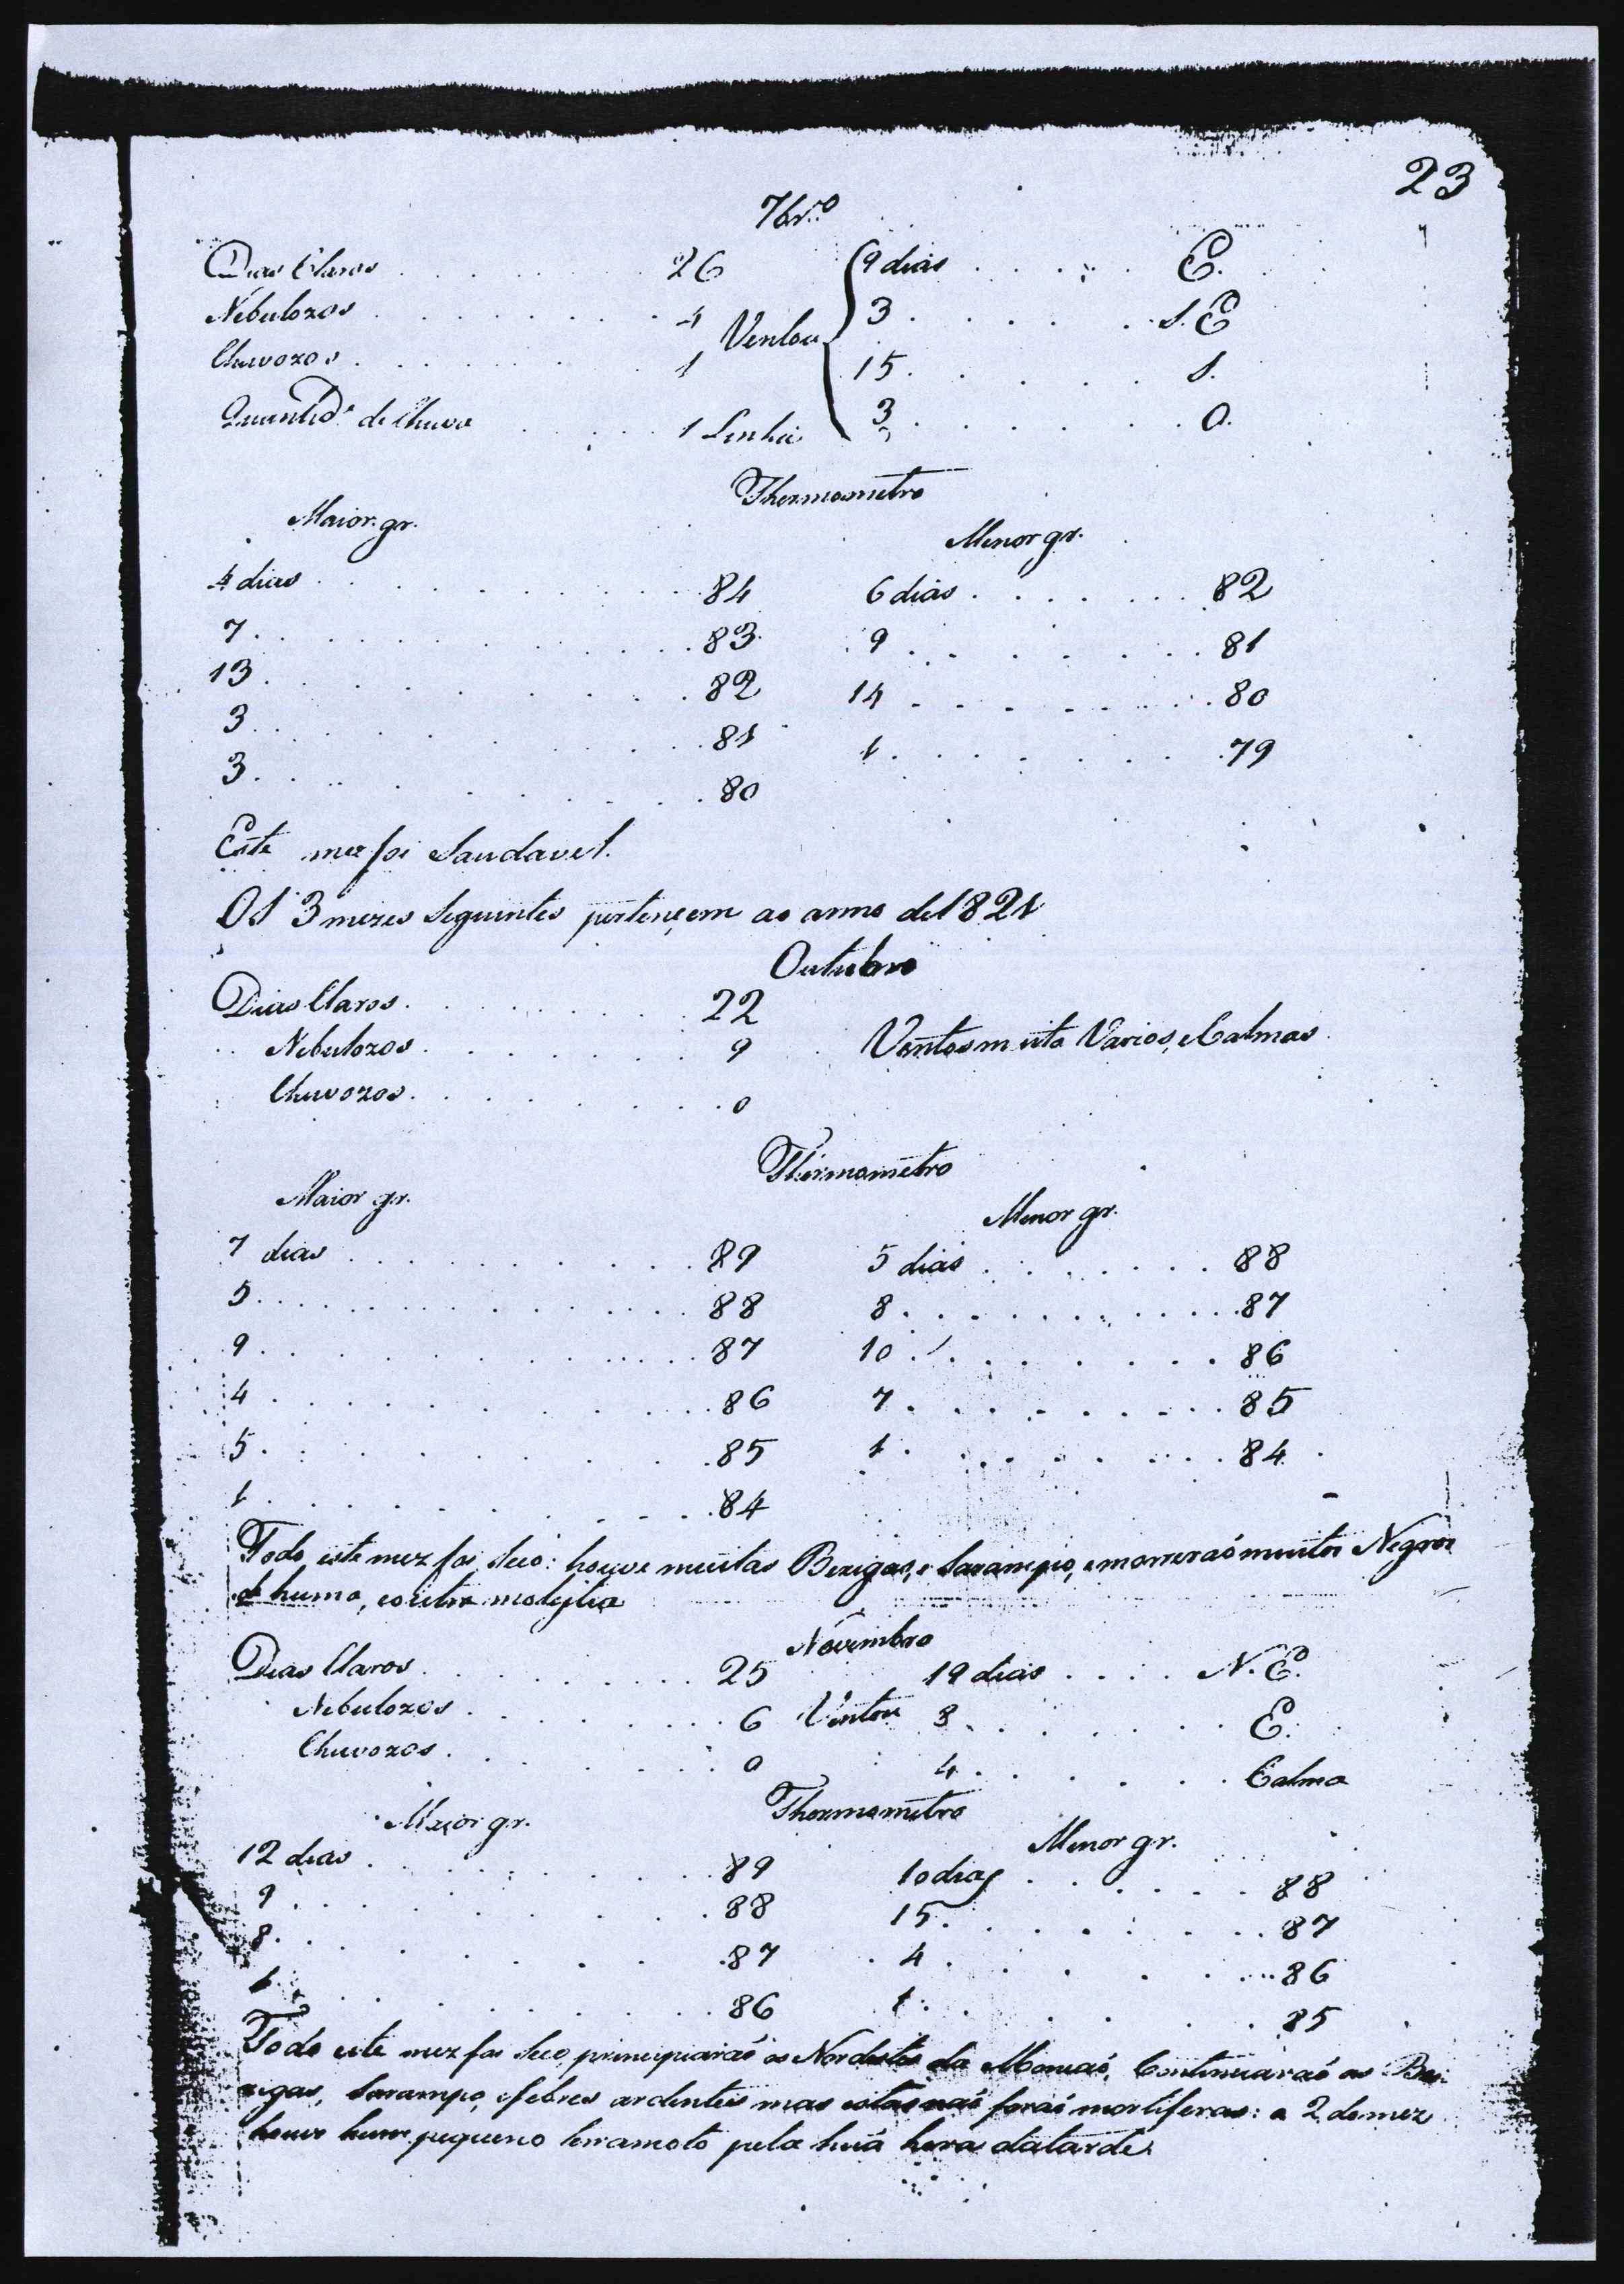 23
7br.o
Dias Claros . . . . . . . 26 Ventou 9 dias . . . . . E.
Nebulozos . . . . . . . . 4 3 . . . . . . S. E
Chuvozos . . . . . . . . 1 15 . . . . . . S.
Quantid.e de Chuva . . . . . 1 Linha 3 . . . . . . O.
Thermometro
Maior gr. Menor gr.
4 dias . . . . . . . . 84 6 dias . . . . . . . 82
7 . . . . . . . . . 83 9 . . . . . . . 81
13 . . . . . . . . . 82 14 . . . . . . . 80
3 . . . . . . . . . 81 1 . . . . . . . 79
3 . . . . . . . . . 80
Este mez foi Saudavel.
Os 3 mezes Seguintes pertençem ao anno de 1821
Outubro
Dias Claros . . . . . . . 22
Nebulozos . . . . . . . 9 Ventos mūto Varios, e Calmas
Chuvozos . . . . . . . 0
Thermometro
Maior gr. Menor gr.
7 dias . . . . . . . . 89 5 dias . . . . . . . 88
5 . . . . . . . . . 88 8 . . . . . . . 87
9 . . . . . . . . . 87 10 . . . . . . . 86
4 . . . . . . . . . 86 7 . . . . . . . 85
5 . . . . . . . . . 85 1 . . . . . . . 84
1 . . . . . . . . . 84
Todo este mez foi Seco: houve muitas Bexigas, e Sarampo, e morreraõ muitos Negros
de huma, e outra molestia
Novembro
Dias Claros . . . . . . . 25 19 dias . . . . N. E.
Nebulozos . . . . . . . 6 Ventou 8 . . . . . . E.
Chuvozos . . . . . . . 0 4 . . . . . . Calma
Thermometro
Maior gr. Menor gr.
12 dias . . . . . . . 89 10 dias . . . . . . 88
9 . . . . . . . . . 88 15 . . . . . . . 87
8 . . . . . . . . . 87 4 . . . . . . . 86
1 . . . . . . . . . 86 1 . . . . . . . 85
Todo este mez foi Seco, principiaraõ os Nordestes da Monçaõ, Continuaraõ as Be-
xigas, Sarampo, e febres ardentes mas estas naõ foraõ mortiferas: a 2 do mez
houve hum pequeno terramoto pela huã hora da tarde.